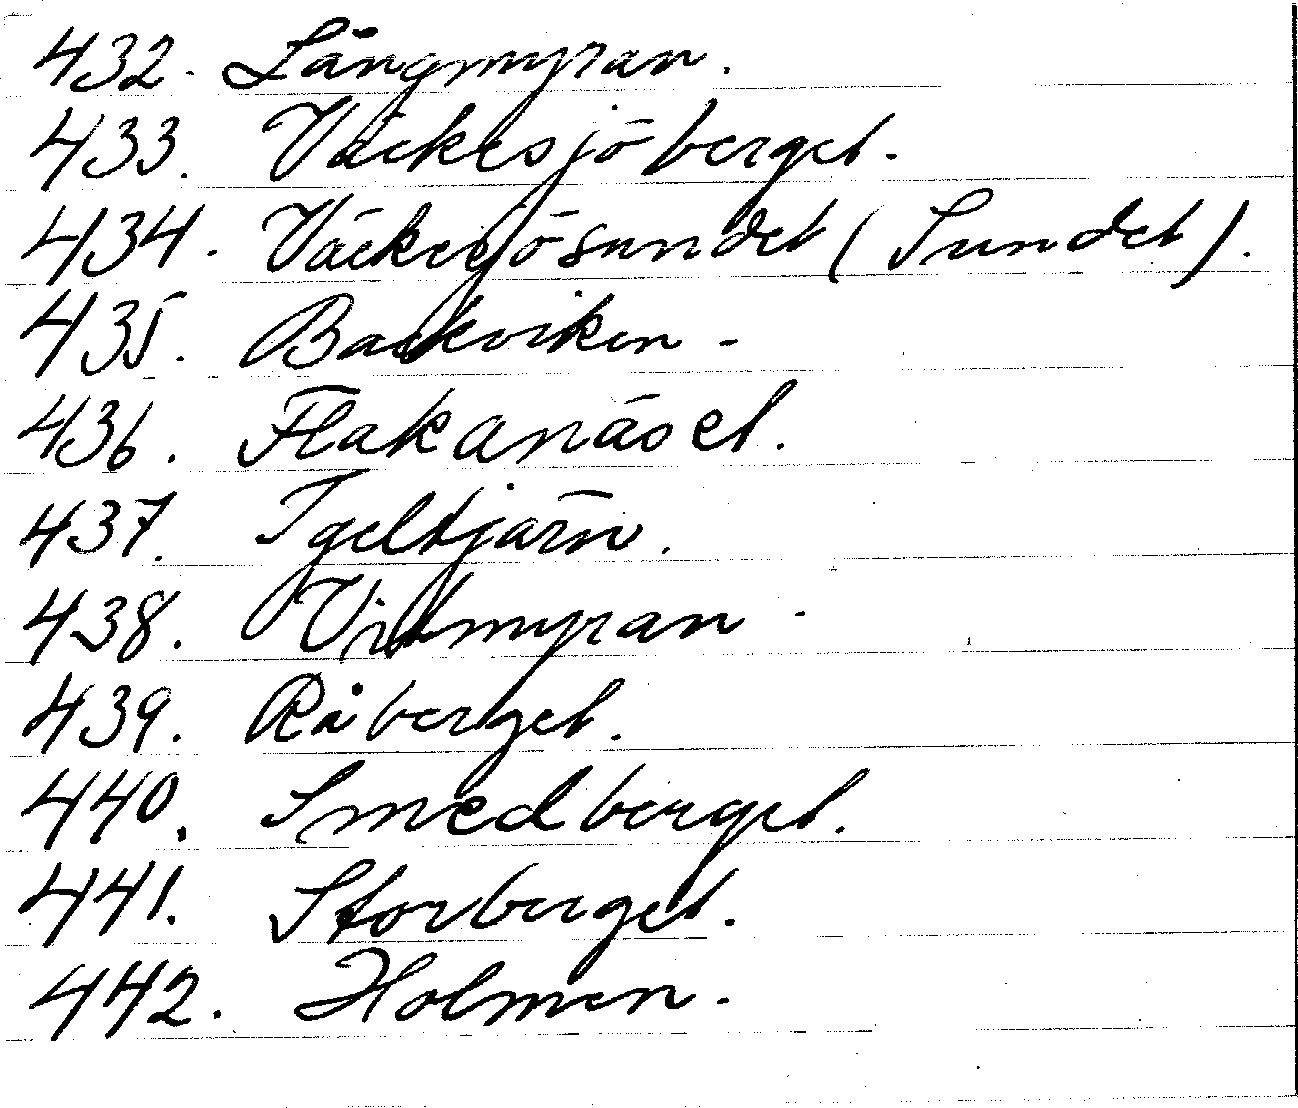 432. Långmyran.
433. Väckesjöberget.
434. Väckesjösundet (Sundet).
435. Backviken.
436. Flakanäset.
437. Igeltjärn.
438. Virkmyran.
439. Råberget.
440. Smedberget.
441. Storberget.
442. Holmen.